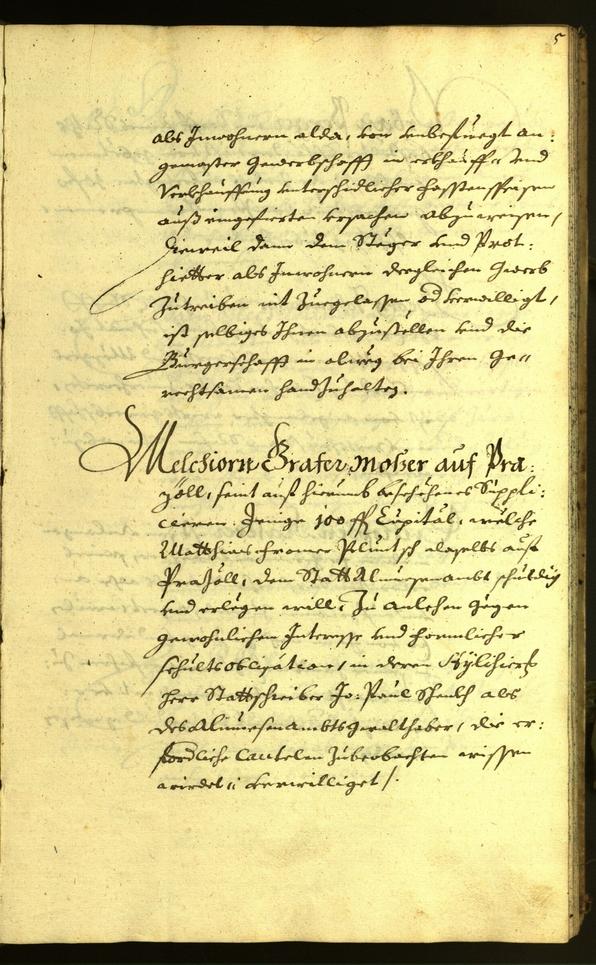 5
als Inwohnern alda, von unbefuegt an:
gemaster Gewerbschafft in erkhauff- und
Verkhauffung unterschidlicher fasstenspeisen
auß eingefierten ursachen abzuweisen,
Dieweil dann dem Steger und Prot:
hietter als Inwohnern dergleichen Gewerb
zutreiben nit zuegelassen od verwilligt,
ist selbiges Ihnen abzustellen und die
Burgerschafft in alweg bei Ihren Ge=
rechtsamen handzuhalten.
Melchiorn Grafer, moßer auf Pra:
zöll, seint auf hierumb beschehenes Suppli:
cieren Jenige 100 ff Capital, welche
Matthias Pluntsch daselbs auf
Prazöll, dem Statt Almuesenambt schuldig
und erlegen will, zu anlehen gegen
gewohnlichen Interesse und formlicher
schultsobligation, in deren
Herr Stattschreiber Jo: Paul als
des Almuesenambts Gwalthaber, die er:
fordliche Cautelen zubeobachten wissen
wirdet, verwilliget /.